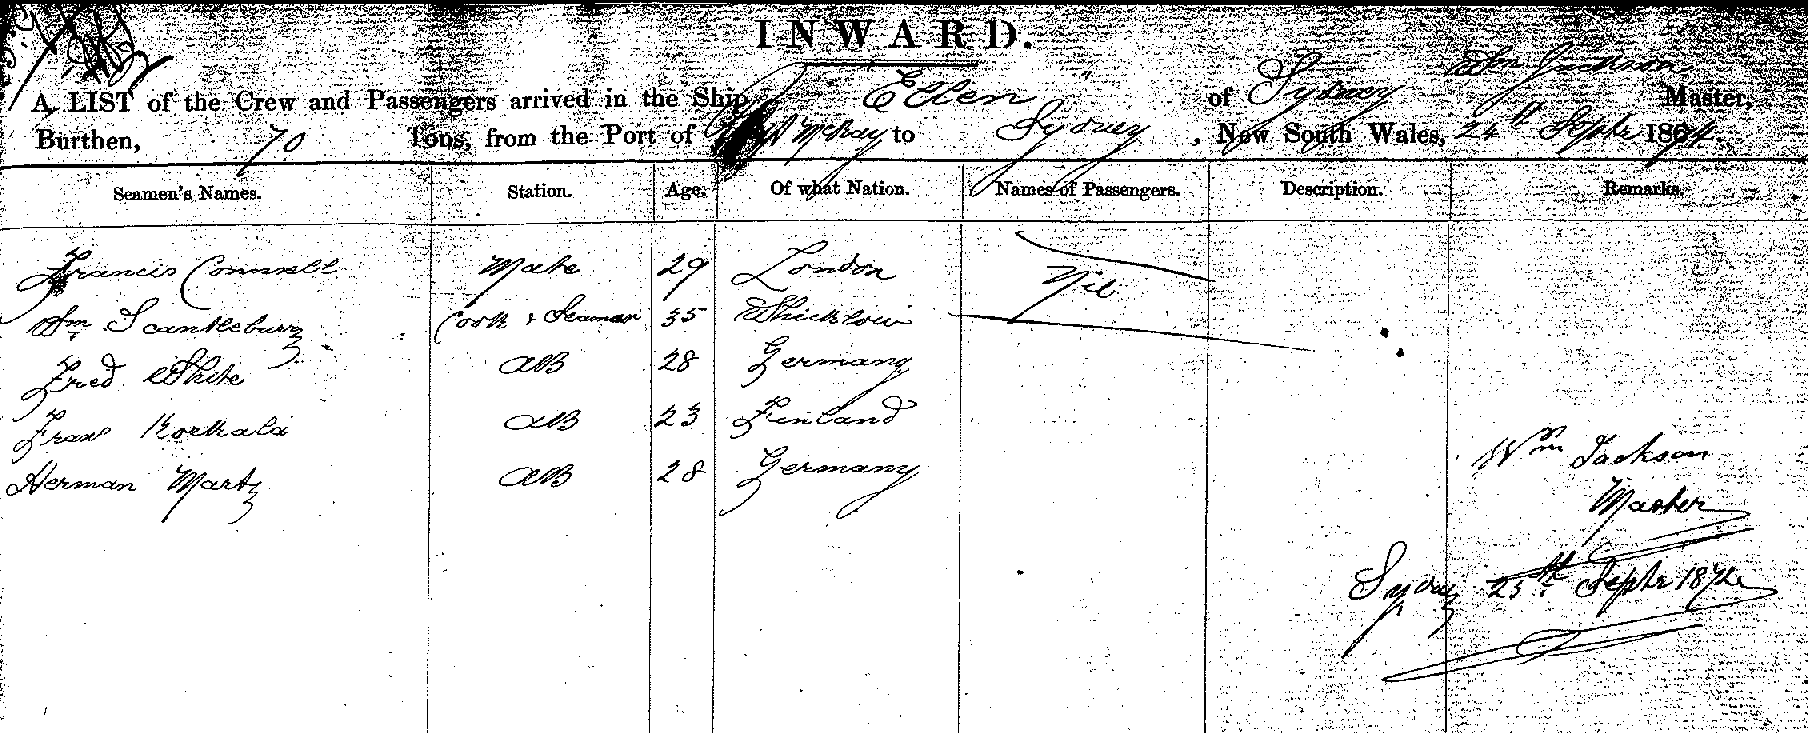 INWARD.
Wm Jackson
A LIST of the Crew and Passengers arrived in the Ship "Ellen" of Sydney Master,
Burthen, 70 Tons, from the Port of McKay to Sydney, New South Wales, 24th Septr 187
Seamen's Names. Station. Age. Of what Nation. Names of Passengers. Description. Remarks.
Francis Connell Mate 29 London Nil
Wm Scantlebury Cook & Seaman 35
Fred White AB 28 Germany
AB 23 Finland
Herman Martz AB 28 Germany
Wm Jackson
Master
Sydney 25th Septr 187